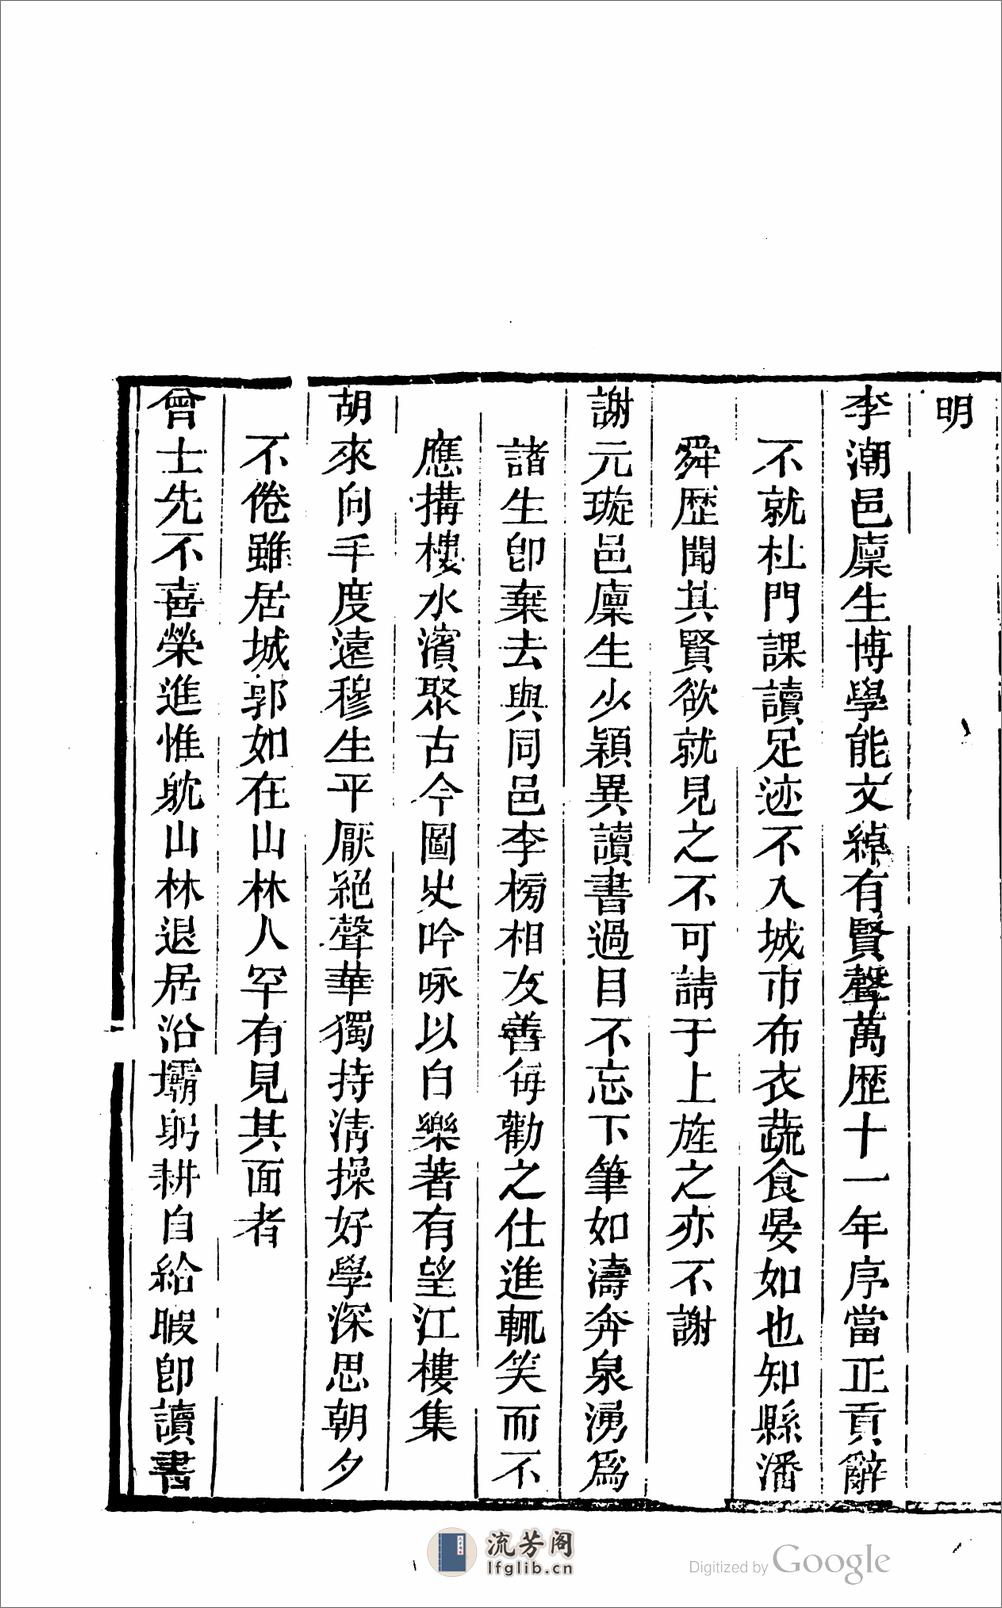 明
李潮邑廩生博學能文綽有賢聲萬歷十一年序當正貢辭
不就杜門課讀足迹不入城市布衣蔬食晏如也知縣潘
舜歷聞其賢欲就見之不可請于上旌之亦不謝
謝元璇邑廩生少穎異讀書過目不忘下筆如濤奔泉湧爲
諸生卽棄去與同邑李榜相友善每勸之仕進輒笑而不
應搆樓水濱聚古今圖史吟咏以自樂著有望江樓集
胡來向千度遠穆生平厭絕聲華獨持淸操好學深思朝夕
不倦雖居城郭如在山林人罕有見其面者
曾士先不喜榮進惟躭山林退居沿壩躬耕自給暇卽讀書
流芳阁
lfglib.cn
Digitized by Google